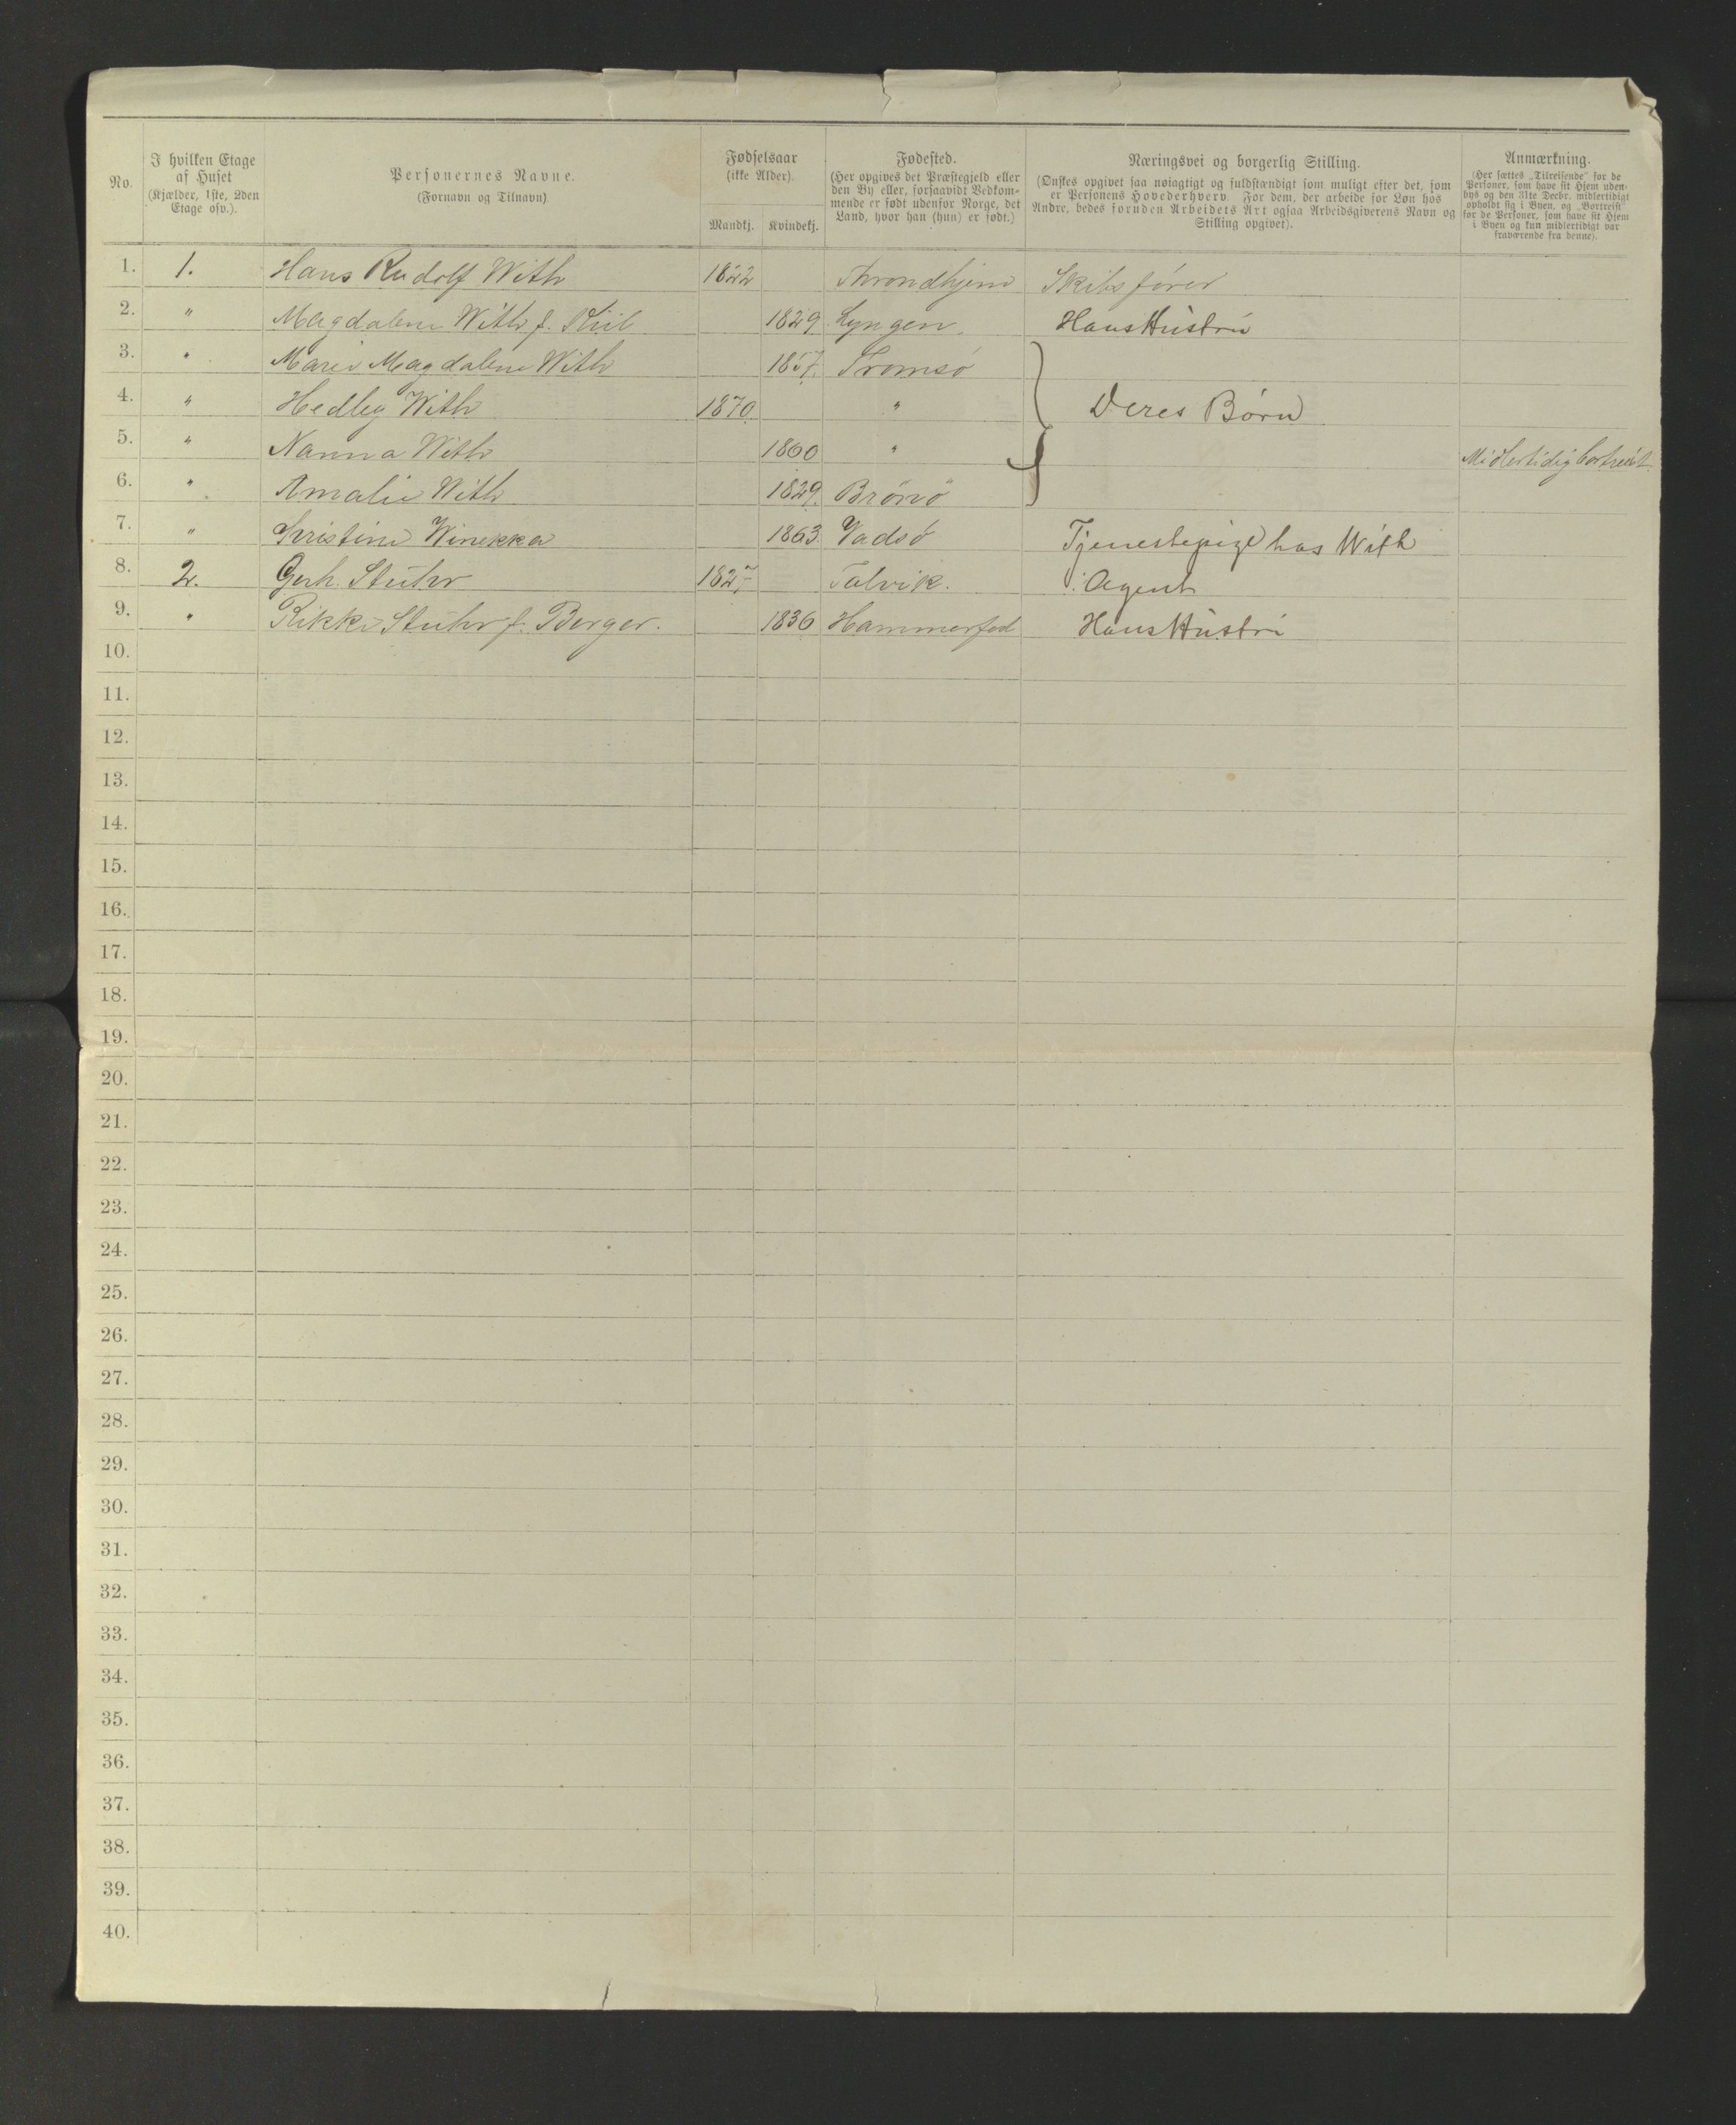 No.
I hvilken Etage
af Huset
(Kjælder, 1ste, 2den
Etage osv.).
Personernes Navne.
(Fornavn og Tilnavn)
Fødselsaar
(ikke Alder).
Mandkj. Kvindekj.
Fødested.
(Her opgives det Præstegjeld eller
den By eller, forsaavidt Vedkom-
mende er født udenfor Norge, det
Land, hvor han (hun) er født.)
Næringsvei og borgerlig Stilling.
(Ønskes opgivet saa nøiagtigt og fuldstændigt som muligt efter det, som
er Personens Hovederhverv. For dem, der arbeide for Løn hos
Andre, bedes foruden Arbeidets Art ogsaa Arbeidsgiverens Navn og
Stilling opgivet).
Anmærkning.
(Her sættes „Tilreisende" for de
Personer, som have sit Hjem uden-
bys og den 31te Decbr. midlertidigt
opholdt sig i Byen, og „Bortreist"
for de Personer, som have sit Hjem
i Byen og kun midlertidigt var
fraværende fra denne).
1. 1. Hans Rudolf With 1822 Throndhjem Skibsfører
2. " Magdalene With f. 1829 Lyngen. Hans Hustru
3. " Marie Magdalene With 1857. Tromsø
4. " Hedley With 1870. " Deres Børn
5. " Nanna With 1860 " Midlertidig bortreist.
6. " Amalie With 1829. Brönö
7. " Kristine Winekka 1863 Vadsö Tjenestepige hos With
8. 2. Gerh. Stuhr 1827 Talvik. Agent
9. " Rikke Stuhr f. Berger. 1836 Hammerfed Hans Hustru
10.
11.
12.
13.
14.
15.
16.
17.
18.
19.
20.
21.
22.
23.
24.
25.
26.
27.
28.
29.
30.
31.
32.
33.
34.
35.
36.
37.
38.
39.
40.